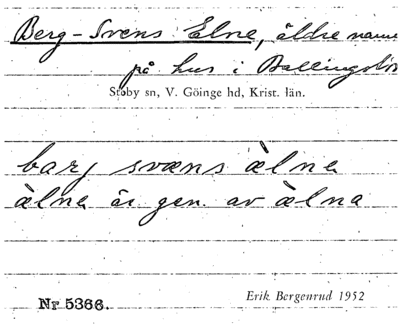 Berg-Svens Elne, äldre namn
på hus i Ballingslöv
Stoby sn, V. Göinge hd, Krist. län.
barj svæns älna
älna är gen. av älna
Nr 5366.
Erik Bergenrud 1952